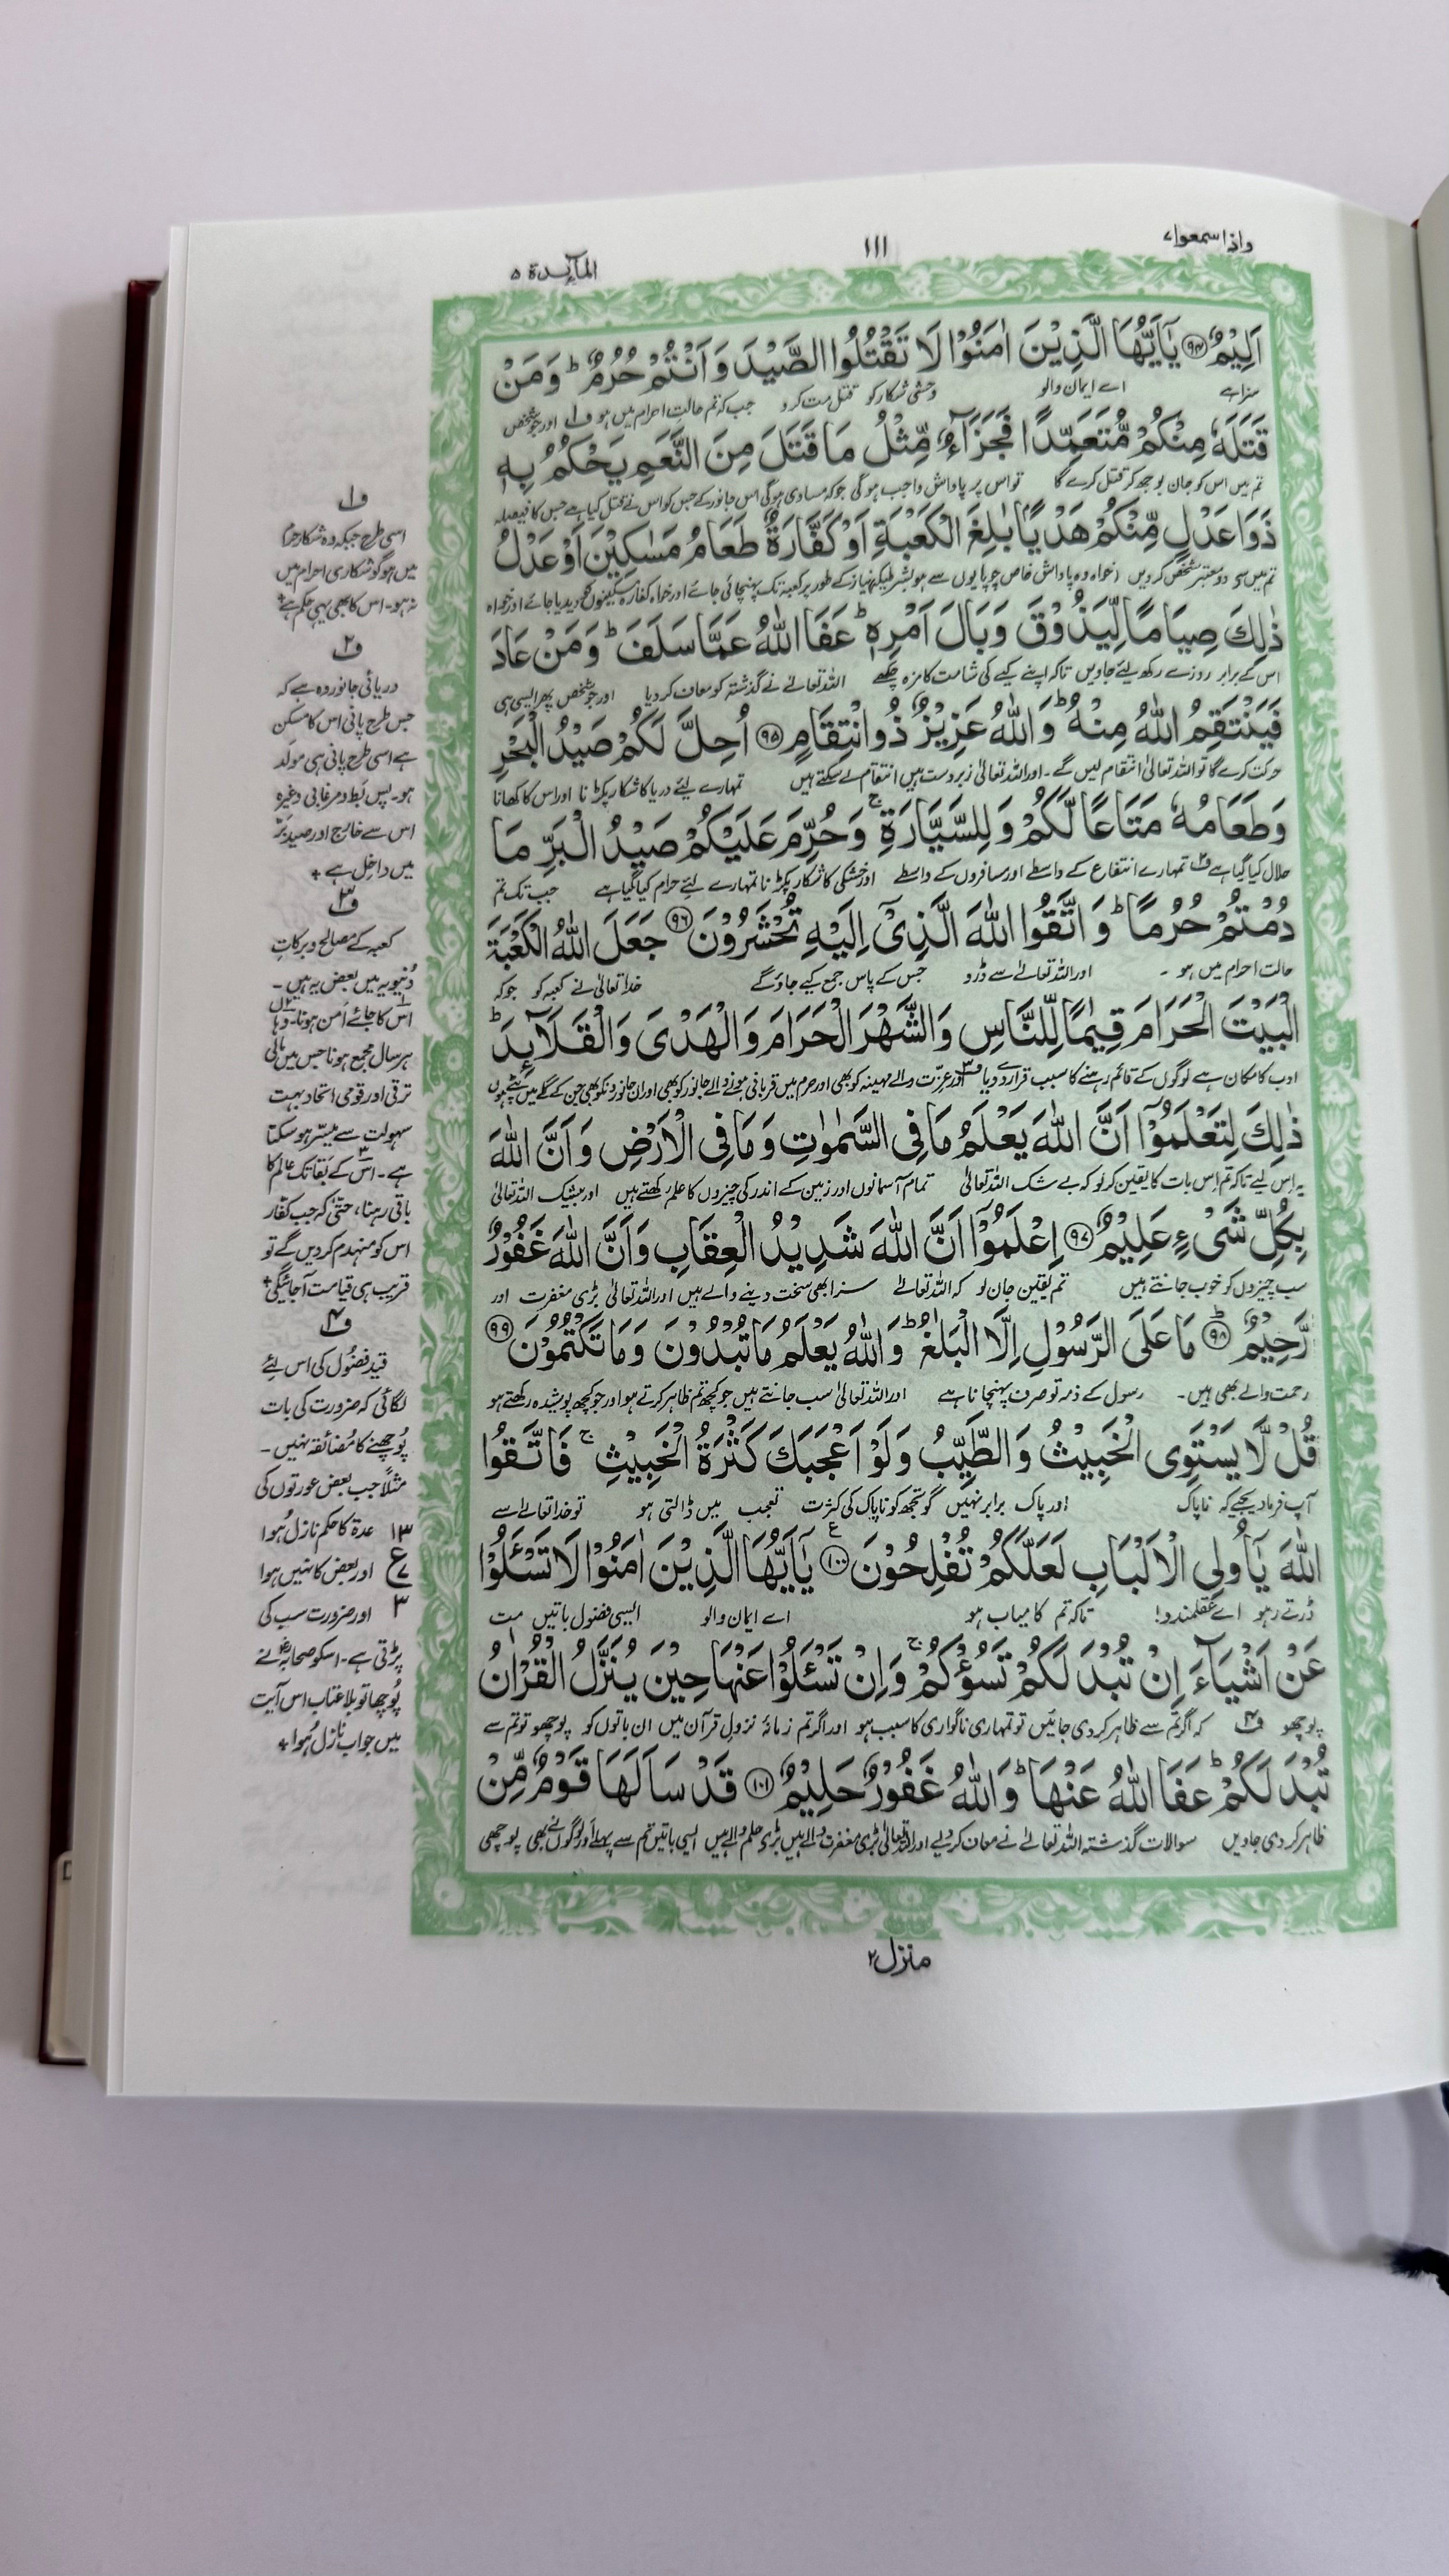 واذا سمعوا ٧
١١١
المآئدة ٥
اَلِیْمٌ ﴿۹۴﴾ یٰۤاَیُّهَا الَّذِیْنَ اٰمَنُوْا لَا تَقْتُلُوا الصَّیْدَ وَ اَنْتُمْ حُرُمٌ ؕ وَ مَنْ
سزا ہے اے ایمان والو وحشی شکار کو قتل مت کرو جب کہ تم حالت احرام میں ہو ف۱ اور جو شخص
قَتَلَهٗ مِنْكُمْ مُّتَعَمِّدًا فَجَزَآءٌ مِّثْلُ مَا قَتَلَ مِنَ النَّعَمِ یَحْكُمُ بِهٖ
تم میں اس کو جان بوجھ کر قتل کرے گا تو اس پر پاداش واجب ہوگی جو کہ مساوی ہوگی اس جانور کے جس کو اس نے قتل کیا ہے جس کا فیصلہ
ذَوَا عَدْلٍ مِّنْكُمْ هَدْیًۢا بٰلِغَ الْكَعْبَةِ اَوْ كَفَّارَةٌ طَعَامُ مَسٰكِیْنَ اَوْ عَدْلُ
تم میں سے دو معتبر شخص کر دیں خواہ وہ پاداش خاص چوپایوں سے ہو بشرطیکہ نیاز کے طور پر کعبہ تک پہنچائی جائے اور خواہ کفارہ مسکینوں کو دیدیا جائے اور خواہ
ذٰلِكَ صِیَامًا لِّیَذُوْقَ وَبَالَ اَمْرِهٖ ؕ عَفَا اللّٰهُ عَمَّا سَلَفَ ؕ وَ مَنْ عَادَ
اس کے برابر روزے رکھ لیئے جاویں تاکہ اپنے کیے کی شامت کا مزہ چکھے اللہ تعالےٰ نے گذشتہ کو معاف کر دیا اور جو شخص پھر ایسی ہی
فَیَنْتَقِمُ اللّٰهُ مِنْهُ ؕ وَ اللّٰهُ عَزِیْزٌ ذُو انْتِقَامٍ ﴿۹۵﴾ اُحِلَّ لَكُمْ صَیْدُ الْبَحْرِ
حرکت کرے گا تو اللہ تعالیٰ انتقام لیں گے۔ اور اللہ تعالیٰ زبردست ہیں انتقام لے سکتے ہیں تمہارے لیئے دریا کا شکار پکڑنا اور اس کا کھانا
وَ طَعَامُهٗ مَتَاعًا لَّكُمْ وَ لِلسَّیَّارَةِ ۚ وَ حُرِّمَ عَلَیْكُمْ صَیْدُ الْبَرِّ مَا
حلال کیا گیا ہے ف۲ تمہارے انتفاع کے واسطے اور مسافروں کے واسطے اور خشکی کا شکار پکڑنا تمہارے لیئے حرام کیا گیا ہے جب تک تم
دُمْتُمْ حُرُمًا ؕ وَ اتَّقُوا اللّٰهَ الَّذِیْۤ اِلَیْهِ تُحْشَرُوْنَ ﴿۹۶﴾ جَعَلَ اللّٰهُ الْكَعْبَةَ
حالت احرام میں ہو۔ اور اللہ تعالےٰ سے ڈرو جس کے پاس جمع کیے جاؤ گے خدا تعالیٰ نے کعبہ کو جو کہ
الْبَیْتَ الْحَرَامَ قِیٰمًا لِّلنَّاسِ وَ الشَّهْرَ الْحَرَامَ وَ الْهَدْیَ وَ الْقَلَآىِٕدَ ؕ
ادب کا مکان ہے لوگوں کے قائم رہنے کا سبب قرار دے دیا ف۳ اور عزت والے مہینہ کو بھی اور حرم میں قربانی ہونے والے جانور کو بھی اور ان جانورونکو بھی جن کے گلے میں پٹے ہوں
ذٰلِكَ لِتَعْلَمُوْۤا اَنَّ اللّٰهَ یَعْلَمُ مَا فِی السَّمٰوٰتِ وَ مَا فِی الْاَرْضِ وَ اَنَّ اللّٰهَ
یہ اس لیے تاکہ تم اس بات کا یقین کر لو کہ بے شک اللہ تعالیٰ تمام آسمانوں اور زمین کے اندر کی چیزوں کا علم رکھتے ہیں اور بیشک اللہ تعالیٰ
بِكُلِّ شَیْءٍ عَلِیْمٌ ﴿۹۷﴾ اِعْلَمُوْۤا اَنَّ اللّٰهَ شَدِیْدُ الْعِقَابِ وَ اَنَّ اللّٰهَ غَفُوْرٌ
سب چیزوں کو خوب جانتے ہیں تم یقین جان لو کہ اللہ تعالےٰ سزا بھی سخت دینے والے ہیں اور اللہ تعالیٰ بڑی مغفرت اور
رَّحِیْمٌ ﴿۹۸﴾ؕ مَا عَلَی الرَّسُوْلِ اِلَّا الْبَلٰغُ ؕ وَ اللّٰهُ یَعْلَمُ مَا تُبْدُوْنَ وَ مَا تَكْتُمُوْنَ ﴿۹۹﴾
رحمت والے بھی ہیں۔ رسول کے ذمہ تو صرف پہنچانا ہے اور اللہ تعالیٰ سب جانتے ہیں جو کچھ تم ظاہر کرتے ہو اور جو کچھ پوشیدہ رکھتے ہو
قُلْ لَّا یَسْتَوِی الْخَبِیْثُ وَ الطَّیِّبُ وَ لَوْ اَعْجَبَكَ كَثْرَةُ الْخَبِیْثِ ۚ فَاتَّقُوا
آپ فرما دیجیے کہ ناپاک اور پاک برابر نہیں گو تجھ کو ناپاک کی کثرت تعجب میں ڈالتی ہو تو خدا تعالےٰ سے
اللّٰهَ یٰۤاُولِی الْاَلْبَابِ لَعَلَّكُمْ تُفْلِحُوْنَ ﴿۱۰۰﴾ یٰۤاَیُّهَا الَّذِیْنَ اٰمَنُوْا لَا تَسْـَٔلُوْا
ڈرتے رہو اے عقلمندو! تاکہ تم کامیاب ہو اے ایمان والو ایسی فضول باتیں مت
عَنْ اَشْیَآءَ اِنْ تُبْدَ لَكُمْ تَسُؤْكُمْ ۚ وَ اِنْ تَسْـَٔلُوْا عَنْهَا حِیْنَ یُنَزَّلُ الْقُرْاٰنُ
پوچھو ف۴ کہ اگر تم سے ظاہر کر دی جائیں تو تمہاری ناگواری کا سبب ہو اور اگر تم زمانۂ نزول قرآن میں ان باتوں کو پوچھو تو تم سے
تُبْدَ لَكُمْ ؕ عَفَا اللّٰهُ عَنْهَا ؕ وَ اللّٰهُ غَفُوْرٌ حَلِیْمٌ ﴿۱۰۱﴾ قَدْ سَاَلَهَا قَوْمٌ مِّنْ
ظاہر کر دی جاویں سوالات گذشتہ اللہ تعالےٰ نے معاف کر دیے اور اللہ تعالیٰ بڑی مغفرت والے ہیں بڑے حلم والے ہیں ایسی باتیں تم سے پہلے اور لوگوں نے بھی پوچھی
ف۱
اسی طرح جبکہ وہ شکار حرم
میں ہو گو شکاری احرام میں
نہ ہو۔ اس کا بھی یہی حکم ہے
ف۲
دریائی جانور وہ ہے کہ
جس طرح پانی اس کا مسکن
ہے اسی طرح پانی ہی مولد
ہو۔ پس بط و مرغابی وغیرہ
اس سے خارج اور صید بَر
میں داخل ہے
ف۳
کعبہ کے مصالح و برکات
دُنیویہ میں بعض یہ ہیں۔
اس کا جائے امن ہونا۔ وہاں
ہر سال مجمع ہونا جس میں مالی
ترقی اور قومی اتحاد بہت
سہولت سے میسر ہو سکتا
ہے۔ اس کے بقا تک عالم کا
باقی رہنا، حتیٰ کہ جب کفار
اس کو منہدم کر دیں گے تو
قریب ہی قیامت آ جائیگی
ف۴
قید فضول کی اس لیئے
لگائی کہ ضرورت کی بات
پوچھنے کا مضائقہ نہیں۔
مثلاً جب بعض عورتوں کی
عدة کا حکم نازل ہوا
اور بعض کا نہیں ہوا
اور ضرورت سب کی
پڑتی ہے۔ اسکو صحابہؓ نے
پوچھا تو بلا عتاب اس آیت
میں جواب نازل ہوا
١٣
ع
٣
منزل ٢